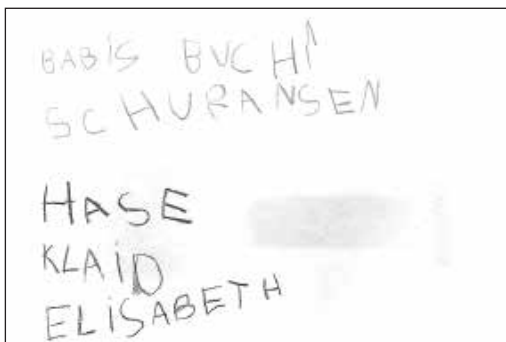 BABiS BUCHI
SCHURANSEN
HASE
KLAiD
ELiSABETH